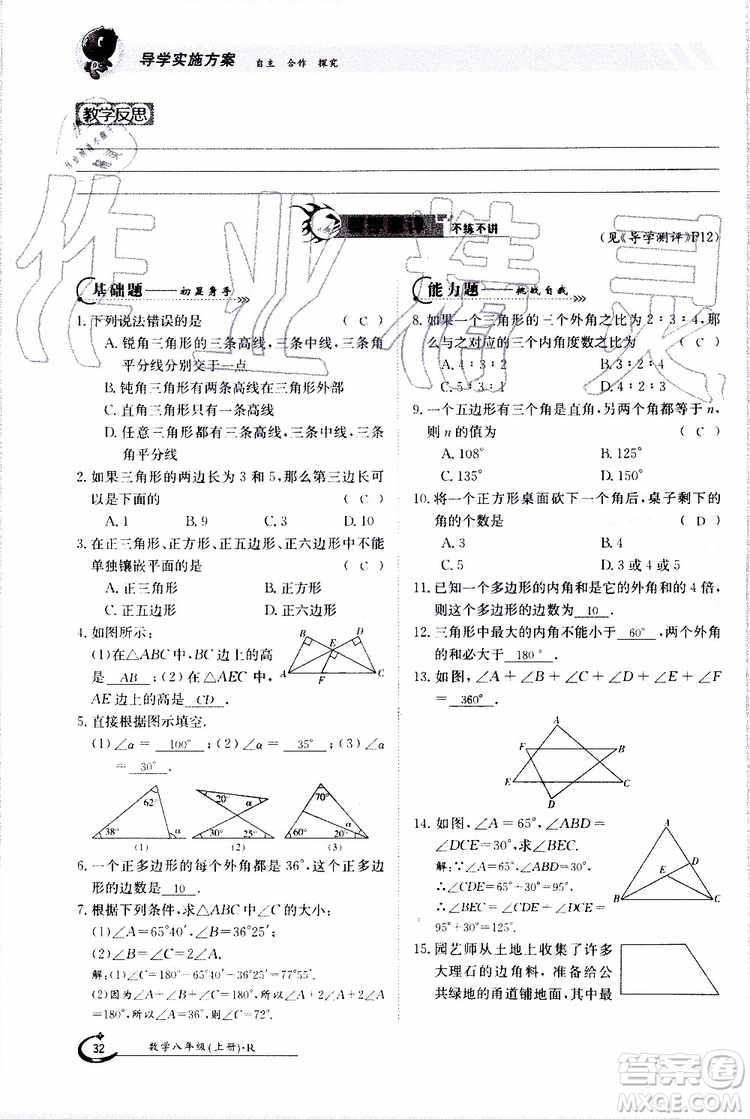 导学实施方案 自主 合作 探究
教学反思
不练不讲
(见《导学测评》P12)
基础题——初显身手
1. 下列说法错误的是 ( C )
A. 锐角三角形的三条高线,三条中线,三条角
平分线分别交于一点
B. 钝角三角形有两条高线在三角形外部
C. 直角三角形只有一条高线
D. 任意三角形都有三条高线,三条中线,三条
角平分线
2. 如果三角形的两边长为 3 和 5,那么第三边长可
以是下面的 ( C )
A. 1 B. 9 C. 3 D. 10
3. 在正三角形、正方形、正五边形、正六边形中不能
单独镶嵌平面的是 ( C )
A. 正三角形 B. 正方形
C. 正五边形 D. 正六边形
4. 如图所示:
(1)在△ABC 中,BC 边上的高
是 AB ;(2)在△AEC 中,
AE 边上的高是 CD .
B E D
A F C
5. 直接根据图示填空.
(1)∠α= 100° ;(2)∠α= 35° ;(3)∠α
= 30° .
62° 38° α
(1)
20° α 30° 25°
(2)
70° 60° 20° α
(3)
6. 一个正多边形的每个外角都是 36°,这个正多边
形的边数是 10 .
7. 根据下列条件,求△ABC 中∠C 的大小:
(1)∠A=65°40′,∠B=36°25′;
(2)∠A=∠B=∠C.
解:(1)∠C=180°-65°40′-36°25′=77°55′.
(2)因为∠A+∠B+∠C=180°,∠A=∠B=
∠C=72°.
能力题——挑战自我
8. 如果一个三角形的三个外角之比为 2∶3∶4,那
么与之对应的三个内角度数之比为 ( C )
A. 4∶3∶2 B. 3∶2∶4
C. 5∶3∶1 D. 3∶1∶5
9. 一个五边形有三个角是直角,另两个角都等于 n,
则 n 的值为 ( C )
A. 108° B. 125°
C. 135° D. 150°
10. 将一个正方形桌面砍下一个角后,桌子剩下的
角的个数是 ( D )
A. 3 B. 4
C. 5 D. 3或4或5
11. 已知一个多边形的内角和是它的外角和的 4 倍,
则这个多边形的边数为 10 .
12. 三角形中最大的内角不能小于 60° ,两个外角
的和必大于 180° .
13. 如图,∠A+∠B+∠C+∠D+∠E+∠F
= 360° .
A
F B
E C
D
14. 如图,∠A=65°,∠ABD=
∠DCE=30°,求∠BEC.
解:∵∠A=65°,∠ABD=30°,
∴∠EDC=65°+30°=95°.
∴∠BEC=∠EDC+∠DCE=
95°+30°=125°.
A
D
E
B C
15. 园艺师从土地上收集了许多
大理石的边角料,准备给公
共绿地的甬道铺地面,其中最
32 数学八年级(上册)·R
作业精灵
答案圈